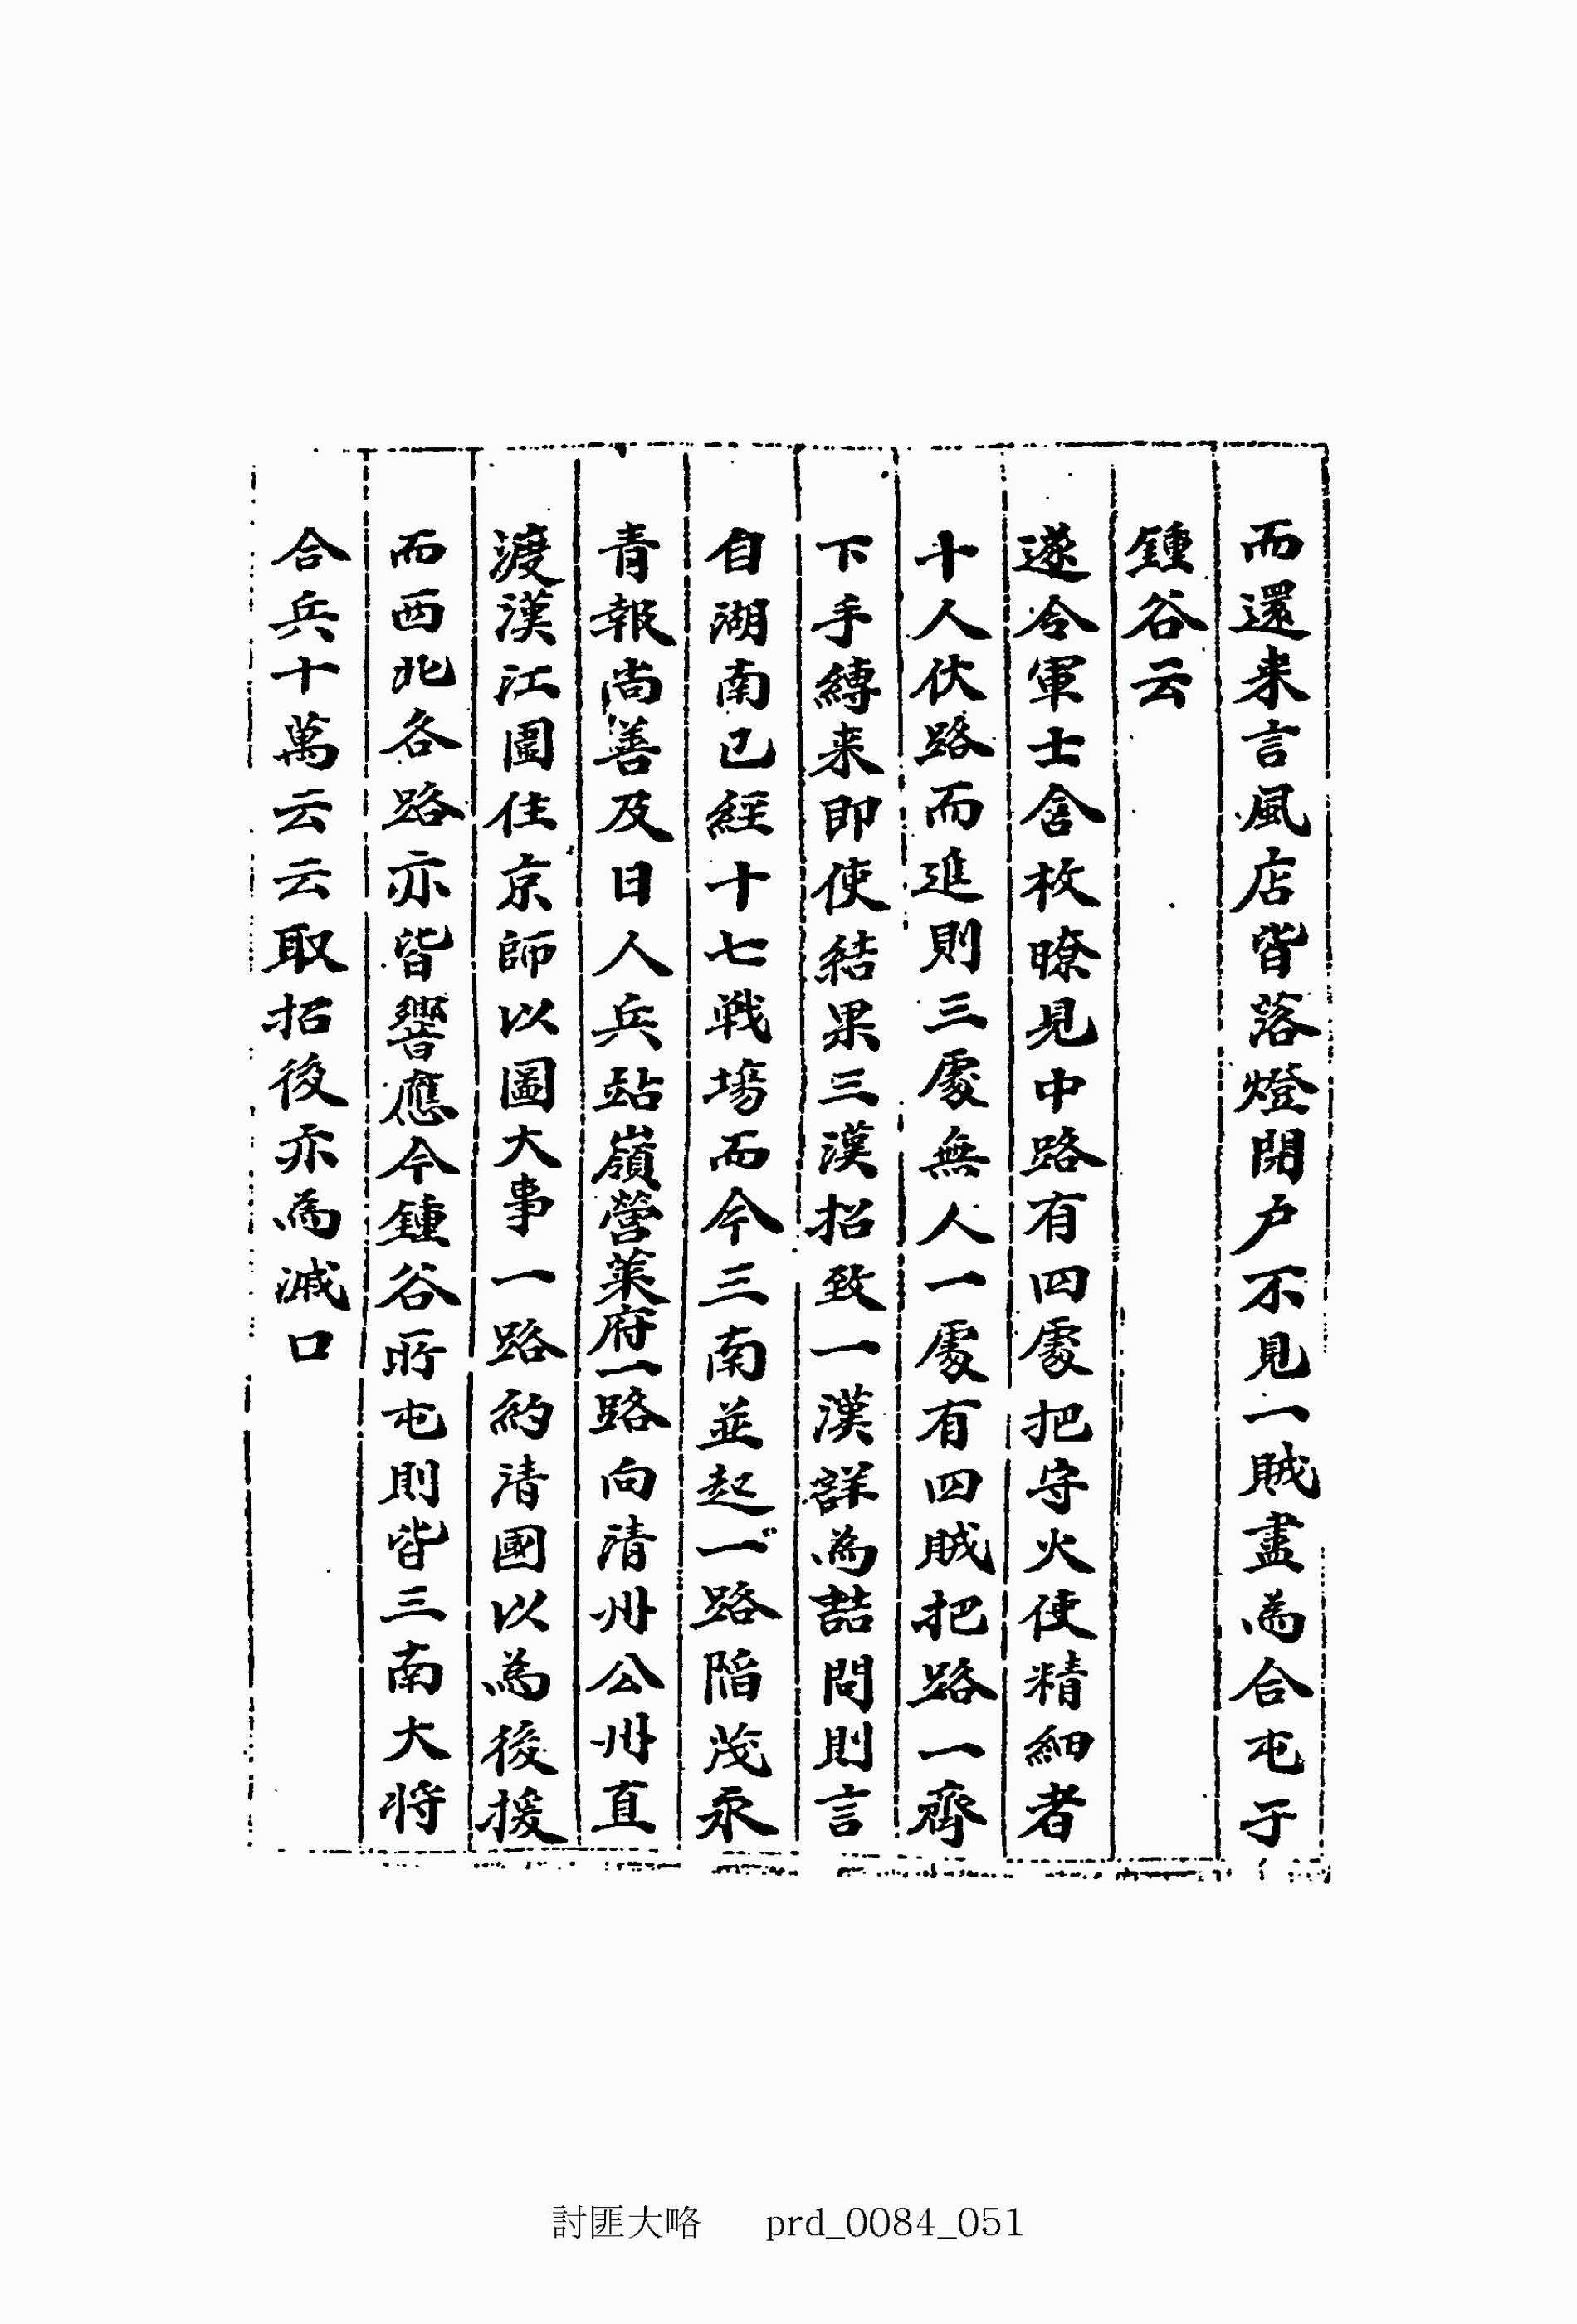 而還来言風店皆落燈閉户不見一賊盡為合屯于
鍾谷云
遂令軍士含枚瞭見中路有四處把守火使精細者
十人伏路而進則三處無人一處有四賊把路一齊
下手縛来即使結果三漢招致一漢詳為詰問則言
自湖南已經十七戦場而今三南並起一路陷茂永
青報尚善及日人兵站嶺營萊府一路向清州公州直
渡漢江圖住京師以圖大事一路約清國以為後援
而西北各路亦皆響應今鍾谷所屯則皆三南大将
合兵十萬云云取招後亦為滅口
討匪大略 prd_0084_051